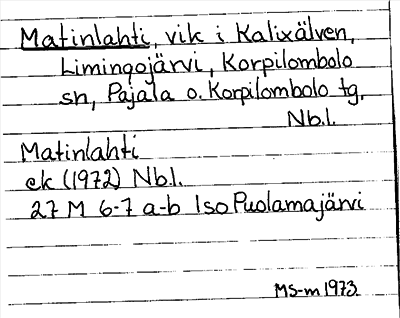 Matinlahti, vik i Kalixälven,
Limingojärvi, Korpilombolo
sn, Pajala o. Korpilombolo tg,
Nbl.
Matinlahti
ek (1972) Nbl.
27 M 6-7 a-b Iso Puolamajärvi
MS-m 1973